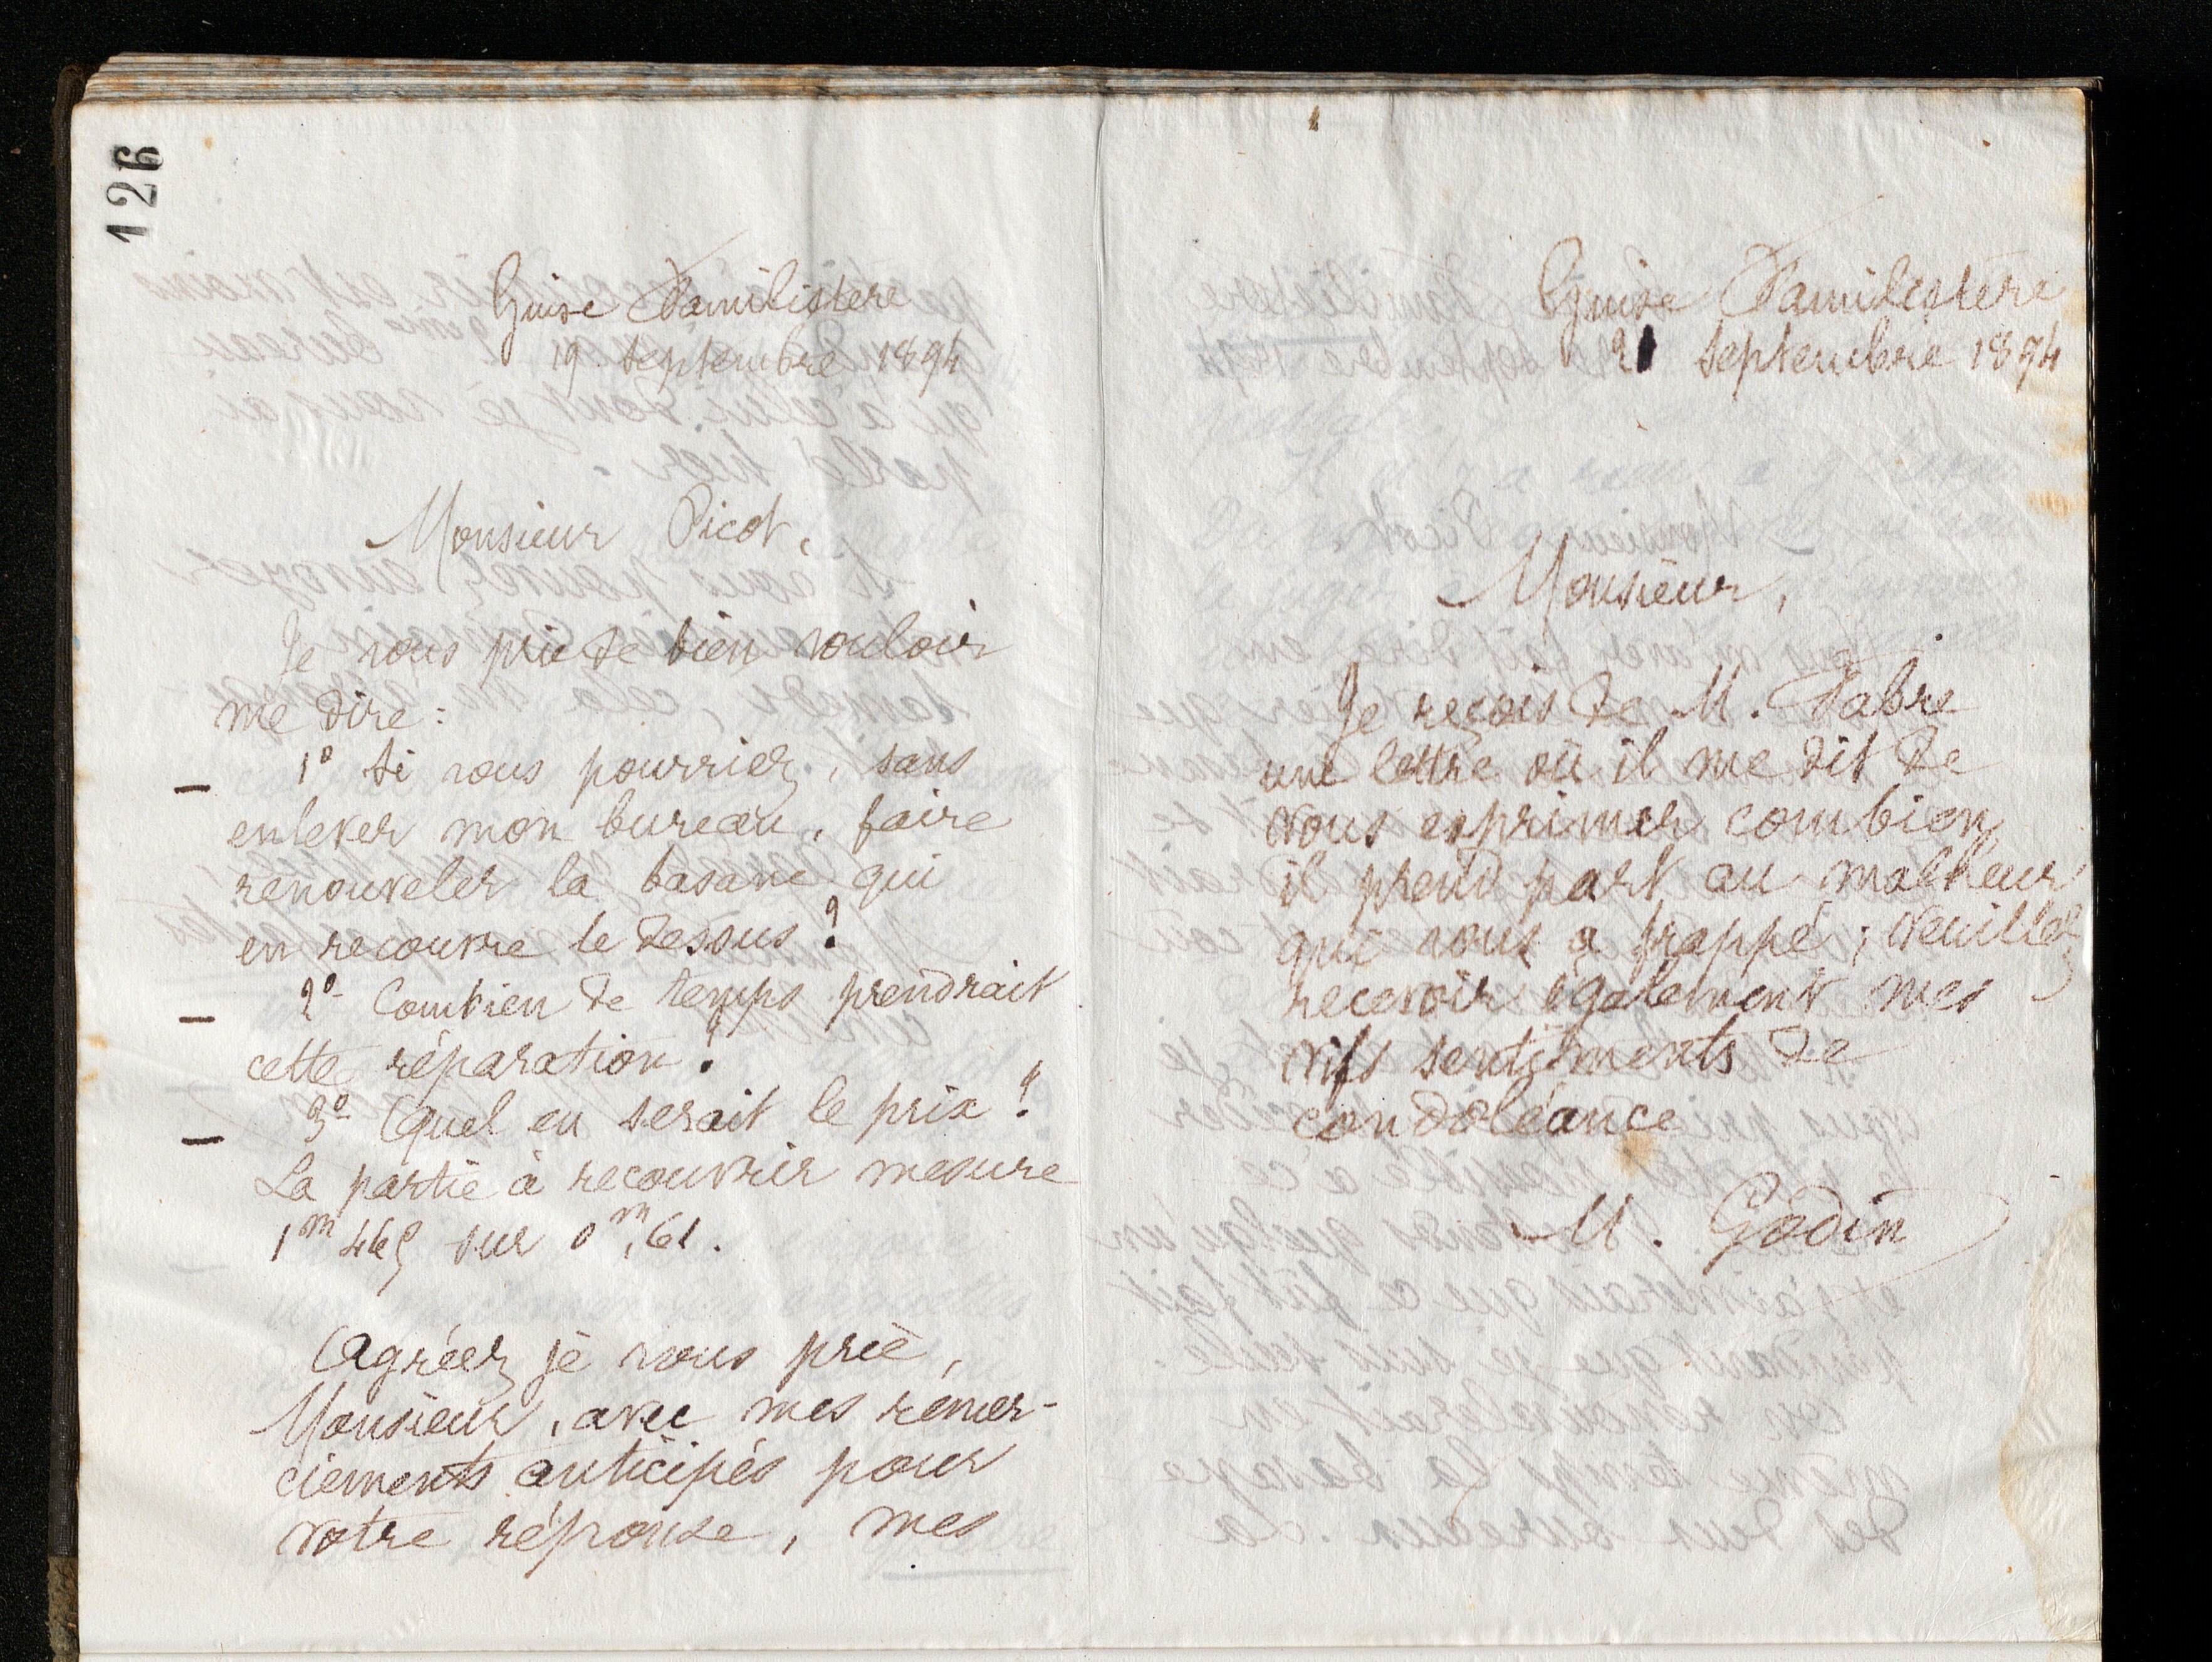 126
Guise Familistère
19 septembre 1894
Monsieur Picot,
Je vous prie de bien vouloir
me dire :
1° si vous pourriez, sans
enlever mon bureau, faire
renouveler la basane qui
en recouvre le dessus ?
2° Combien de temps prendrait
cette réparation ?
3° Quel en serait le prix ?
La partie à recouvrir mesure
1m 465 sur 0m,61.
Agréez je vous prie,
Monsieur, avec mes remer-
ciements anticipés pour
votre réponse, mes
Guise Familistère
21 septembre 1894
Monsieur,
Je reçois de M. Fabre
une lettre où il me dit de
vous exprimer combien
il prend part au malheur
qui vous a frappé ; veuillez
recevoir également mes
vifs sentiments de
condoléance
M. Godin